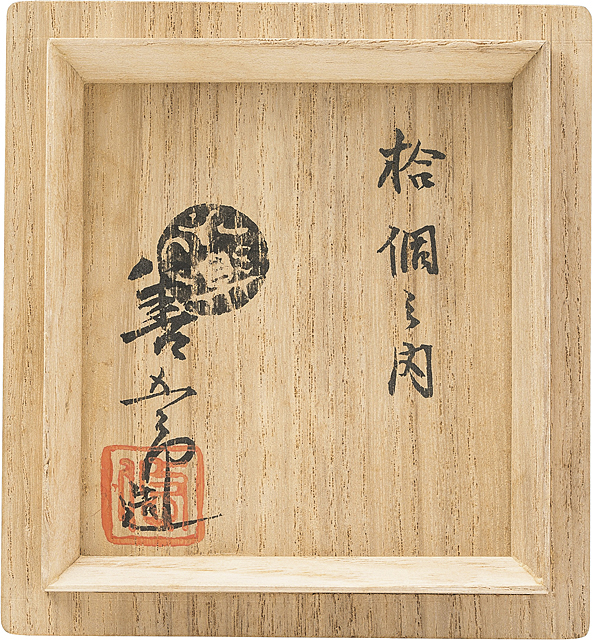 拾個之内
善五郎造